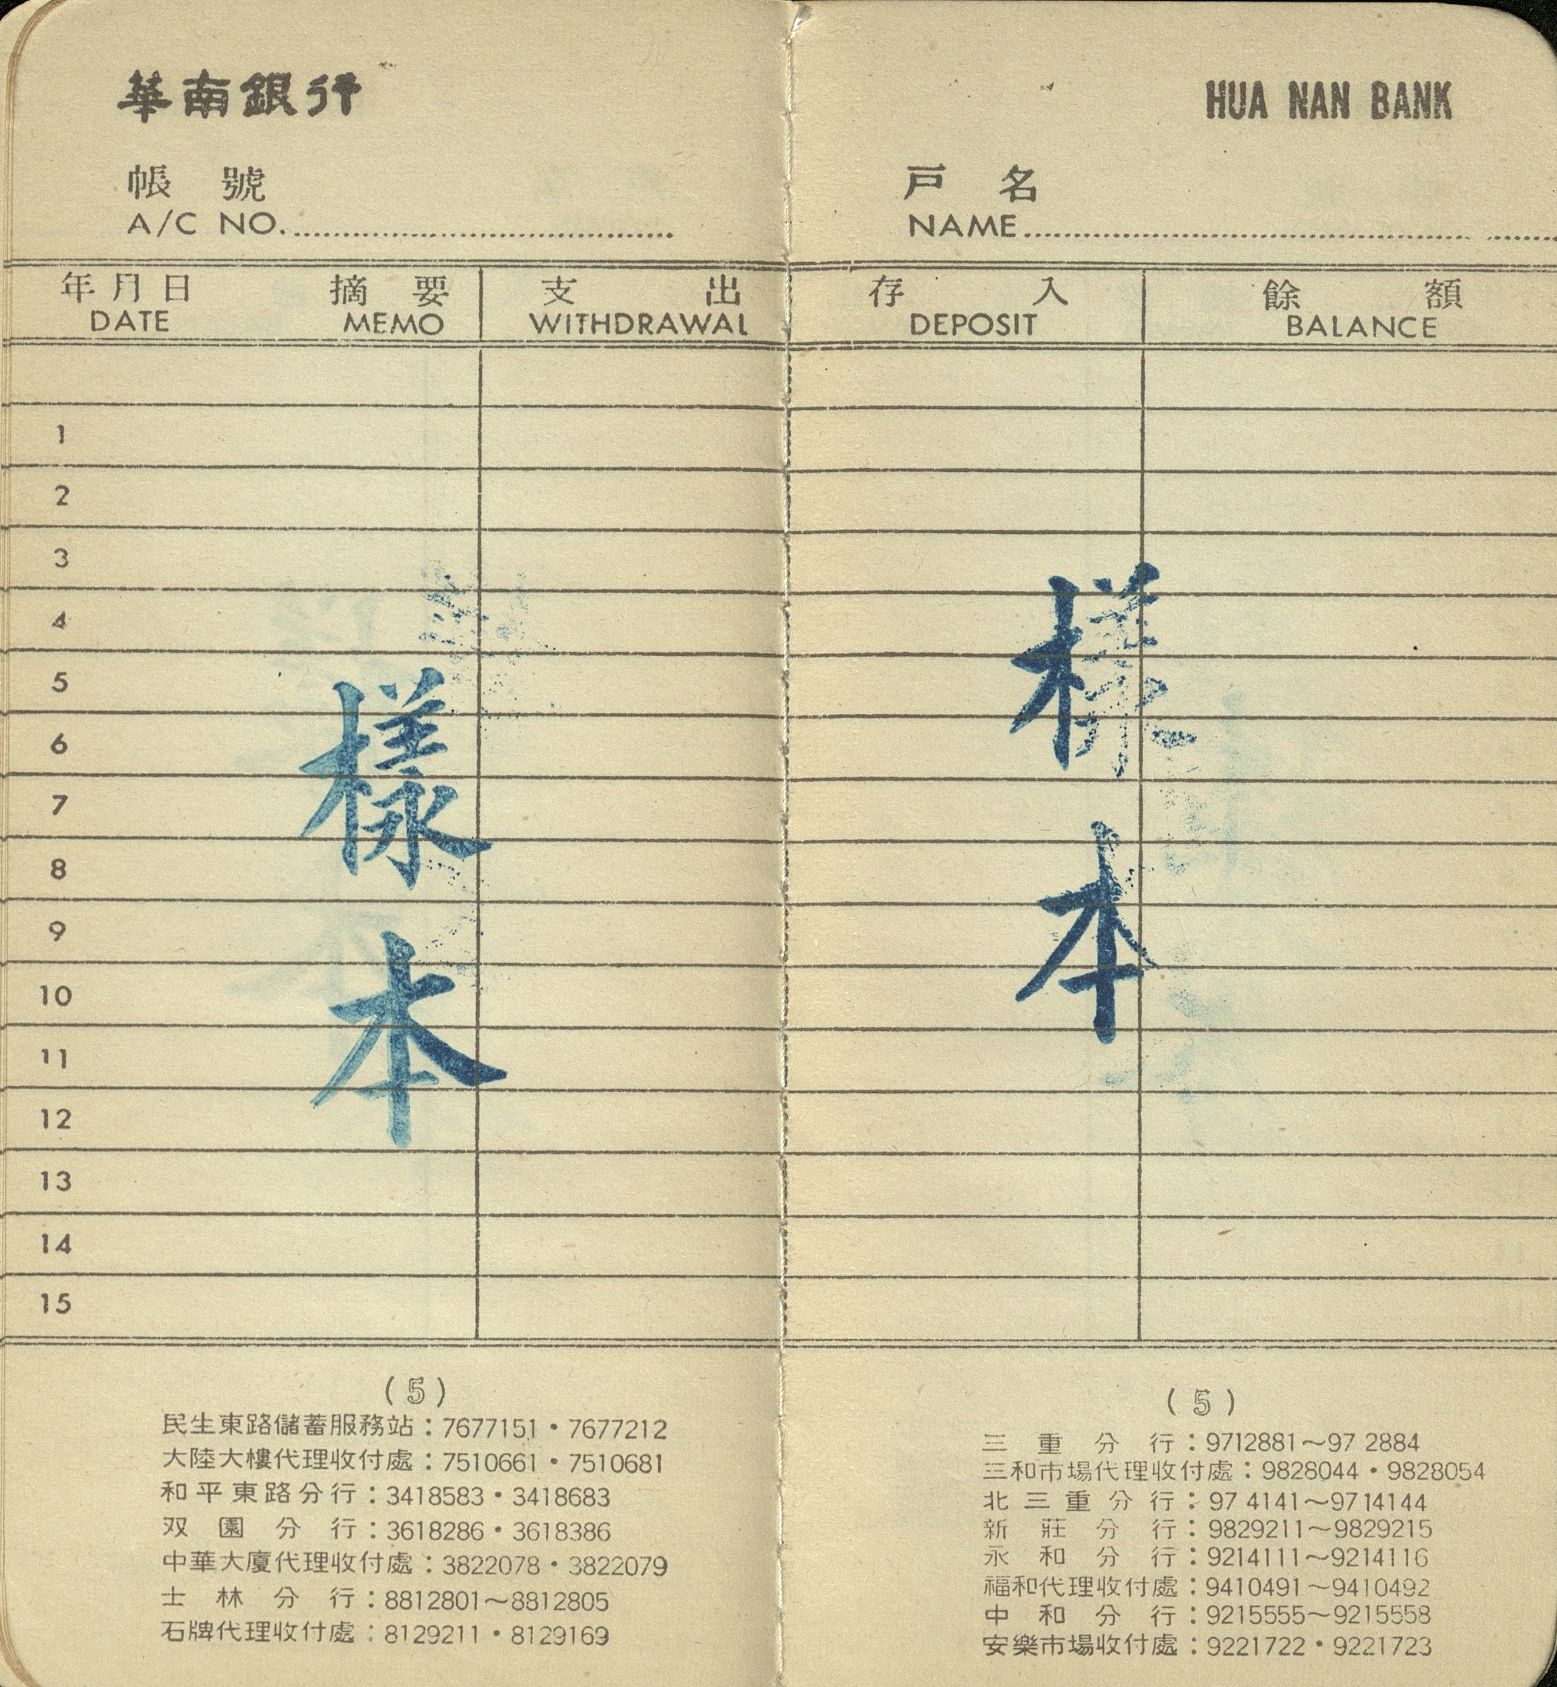 華南銀行
帳號
A/C NO.
年月日 摘要 支出
DATE MEMO WITHDRAWAL
1
2
3
4
5
6
7
8
9
10
11
12
13
14
15
樣本
(5)
民生東路儲蓄服務站：7677151・7677212
大陸大樓代理收付處：7510661・7510681
和平東路分行：3418583・3418683
双園分行：3618286・3618386
中華大廈代理收付處：3822078・3822079
士林分行：8812801～8812805
石牌代理收付處：8129211・8129169
HUA NAN BANK
戶名
NAME
存入 餘額
DEPOSIT BALANCE
樣本
(5)
三重分行：9712881～97 2884
三和市場代理收付處：9828044・9828054
北三重分行：97 4141～9714144
新莊分行：9829211～9829215
永和分行：9214111～9214116
福和代理收付處：9410491～9410492
中和分行：9215555～9215558
安樂市場收付處：9221722・9221723